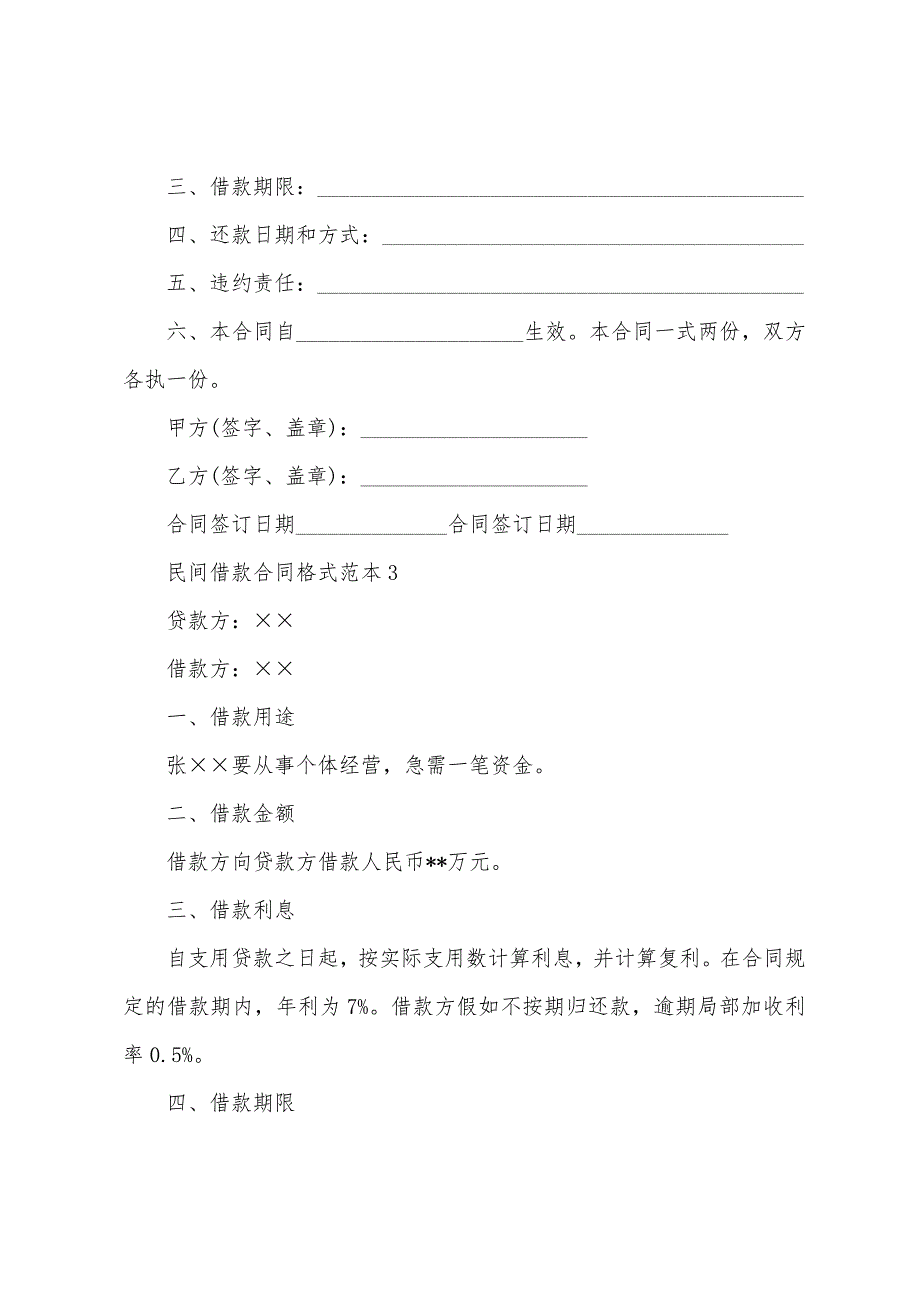 三、借款期限：_____________________________________________
四、还款日期和方式：_______________________________________
五、违约责任：_____________________________________________
六、本合同自_____________________生效。本合同一式两份，双方
各执一份。
甲方(签字、盖章)：_____________________
乙方(签字、盖章)：_____________________
合同签订日期______________合同签订日期______________
民间借款合同格式范本3
贷款方：××
借款方：××
一、借款用途
张××要从事个体经营，急需一笔资金。
二、借款金额
借款方向贷款方借款人民币**万元。
三、借款利息
自支用贷款之日起，按实际支用数计算利息，并计算复利。在合同规
定的借款期内，年利为7%。借款方假如不按期归还款，逾期局部加收利
率0.5%。
四、借款期限